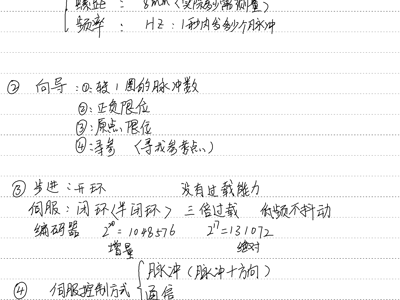 螺距：8mm（实际需测量）
频率：HZ：1秒内发多少个脉冲
② 向导：①：转1圈的脉冲数
②：正负限位
③：原点限位
④：寻参（寻找参考点）
③ 步进：开环 没有过载能力
伺服：闭环（半闭环） 三倍过载 低频不抖动
编码器 2²⁰=1048576 2¹⁷=131072
增量 绝对
④ 伺服控制方式 脉冲（脉冲+方向）
通信